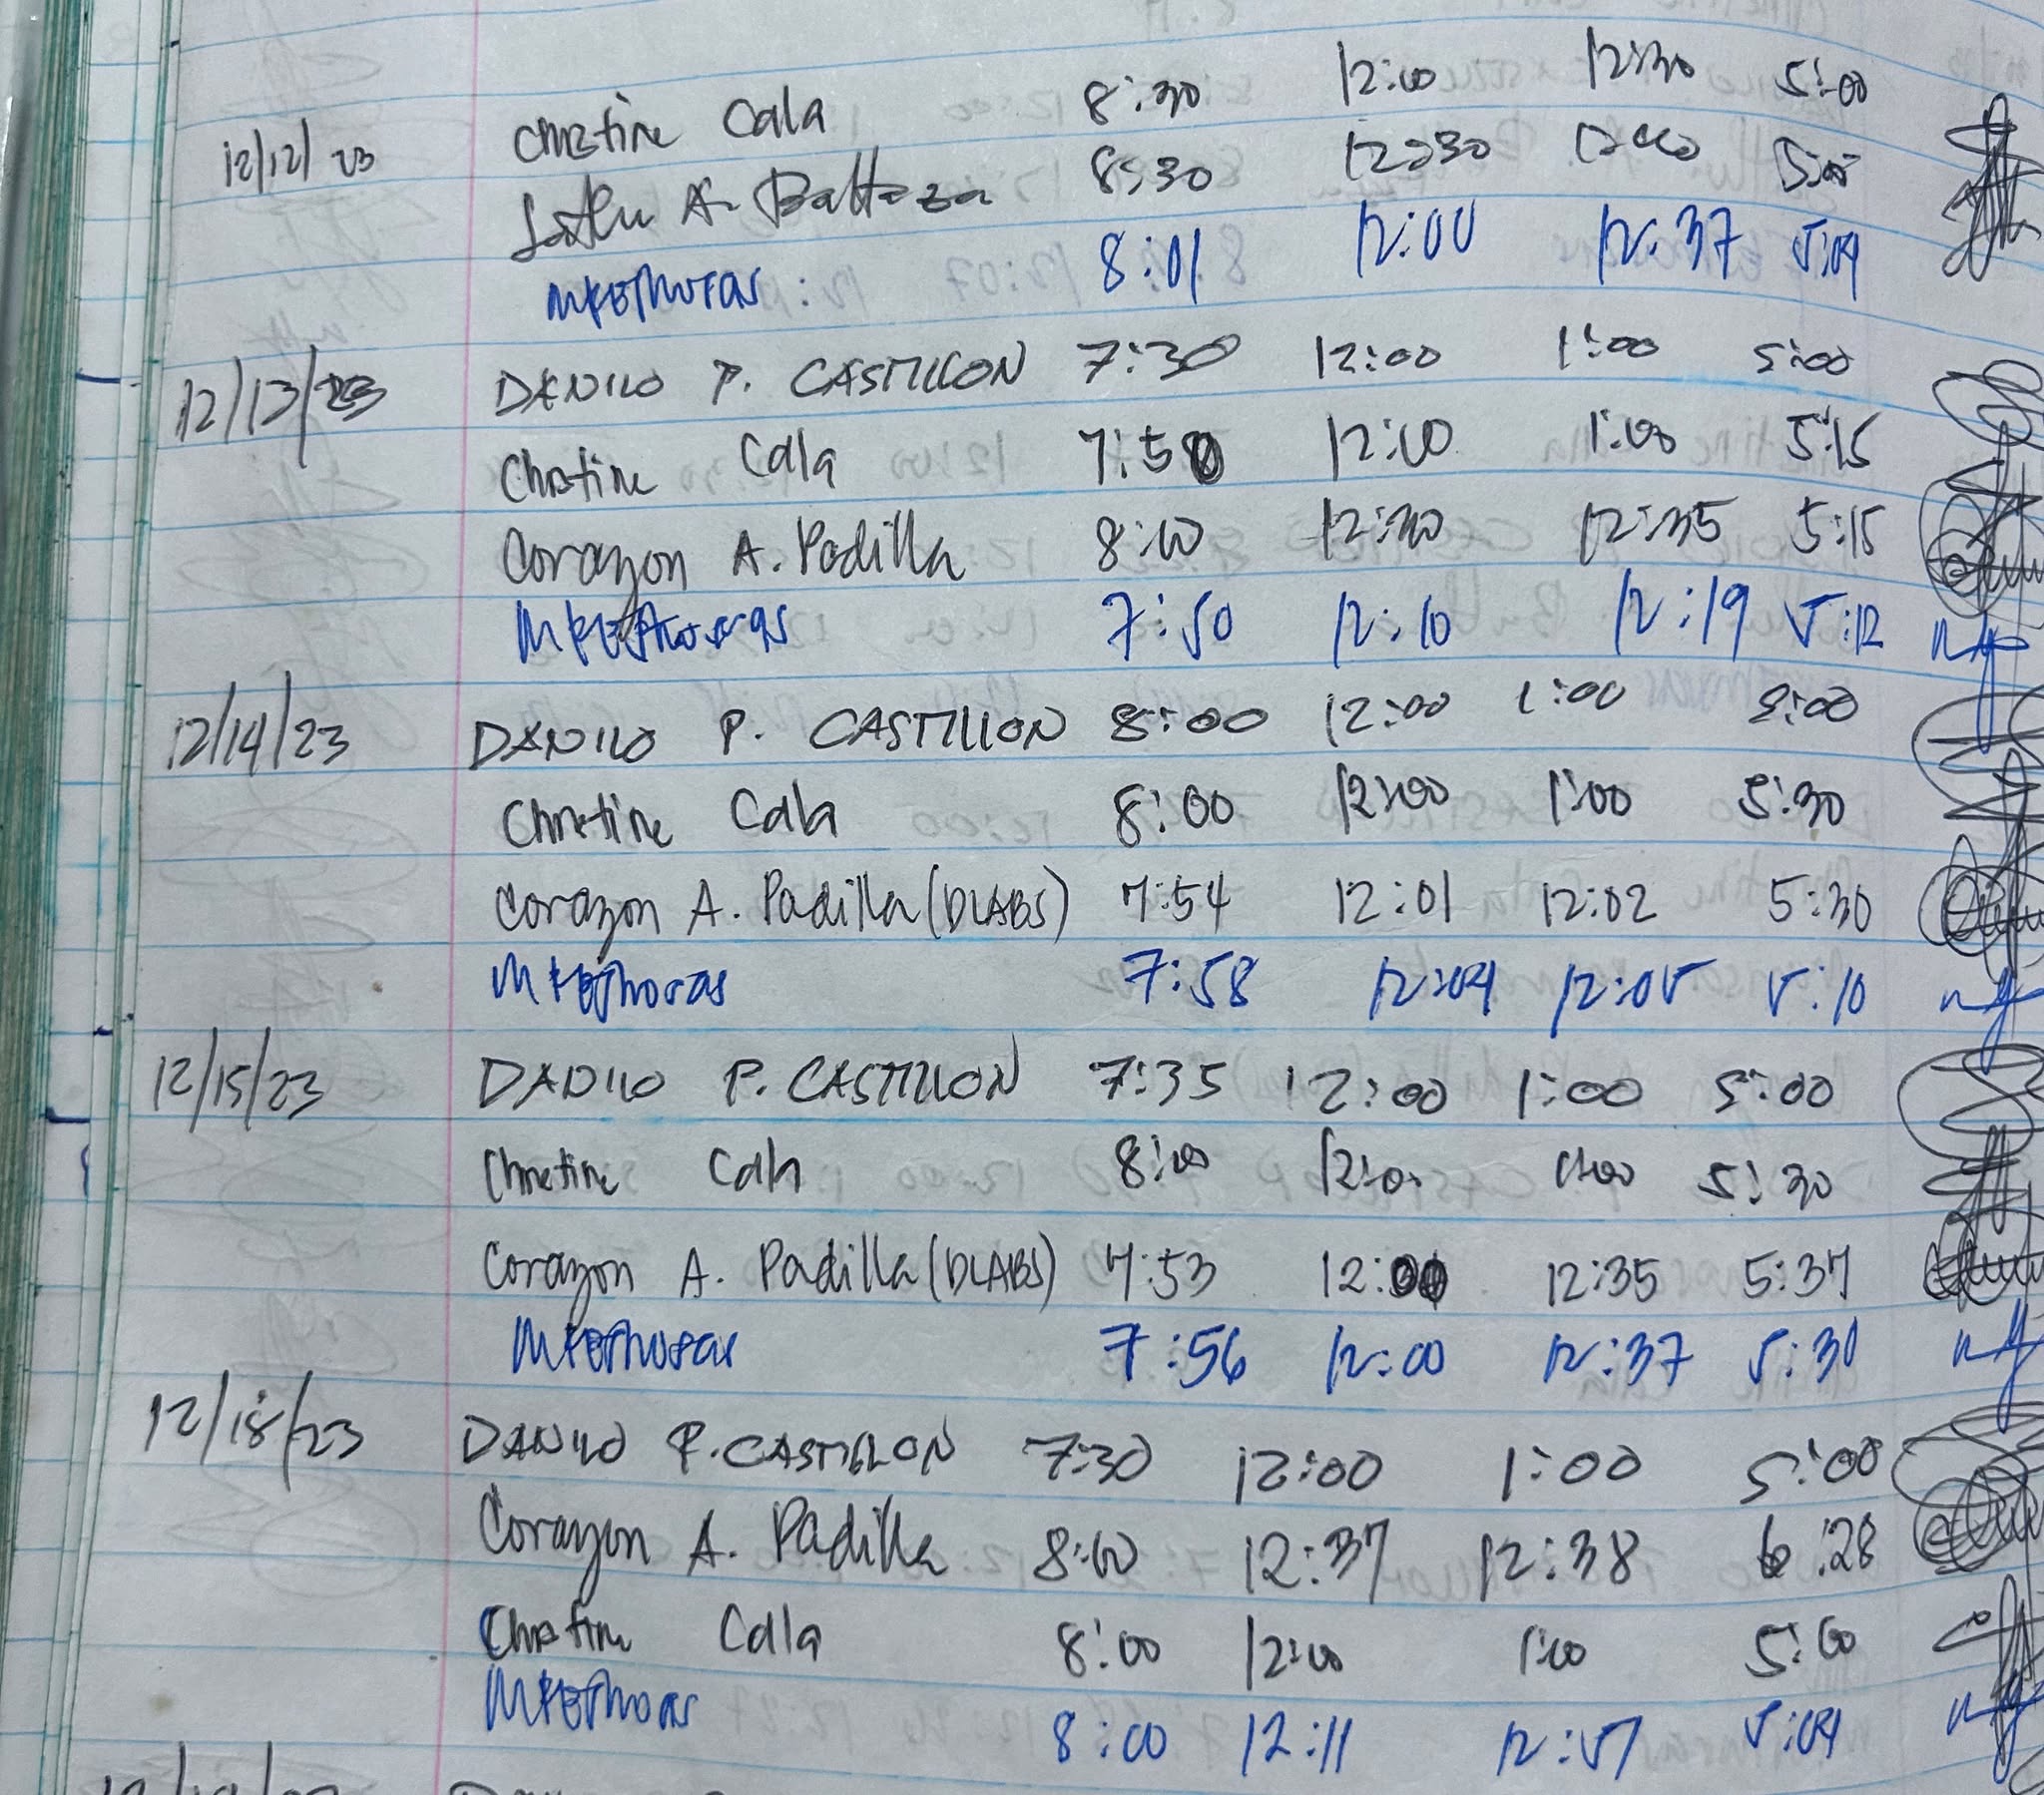 Christine Cala 8:30 12:00 12:30 5:00
12/12/23
A. 8:30 12:30 5:00
8:01 12:00 12:37 5:09
12/13/23 DANILO P. CASTILLON 7:30 12:00 1:00 5:00
Christine Cala 7:50 12:00 1:00 5:15
Corazon A. Padilla 8:00 12:30 12:35 5:15
7:50 12:10 12:19 5:12
12/14/23 DANILO P. CASTILLON 8:00 12:00 1:00 5:00
Christine Cala 8:00 12:00 1:00 5:30
Corazon A. Padilla (DLABS) 7:54 12:01 12:02 5:30
7:58 12:04 12:05 5:10
12/15/23 DANILO P. CASTILLON 7:35 12:00 1:00 5:00
Christine Cala 8:00 12:00 1:00 5:30
Corazon A. Padilla (DLABS) 7:53 12:00 12:35 5:37
7:56 12:00 12:37 5:30
12/18/23 DANILO P. CASTILLON 7:30 12:00 1:00 5:00
Corazon A. Padilla 8:00 12:37 12:38 6:28
Christine Cala 8:00 12:00 1:00 5:00
8:00 12:11 12:57 5:09